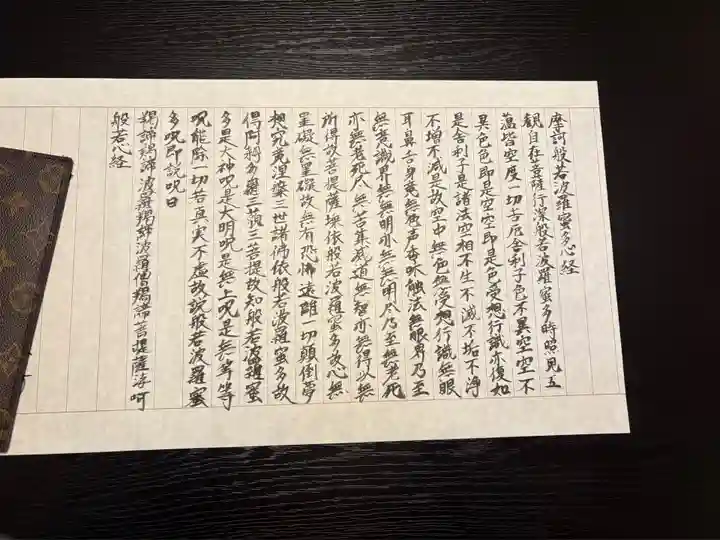 摩訶般若波羅蜜多心経
観自在菩薩行深般若波羅蜜多時照見五
蘊皆空度一切苦厄舎利子色不異空空不
異色色即是空空即是色受想行識亦復如
是舎利子是諸法空相不生不滅不垢不浄
不増不減是故空中無色無受想行識無眼
耳鼻舌身意無色声香味触法無眼界乃至
無意識界無無明亦無無明尽乃至無老死
亦無老死尽無苦集滅道無智亦無得以無
所得故菩提薩埵依般若波羅蜜多故心無
罣礙無罣礙故無有恐怖遠離一切顛倒夢
想究竟涅槃三世諸佛依般若波羅蜜多故
得阿耨多羅三藐三菩提故知般若波羅蜜
多是大神呪是大明呪是無上呪是無等等
呪能除一切苦真実不虚故説般若波羅蜜
多呪即説呪曰
羯諦羯諦波羅羯諦波羅僧羯諦菩提薩婆呵
般若心経